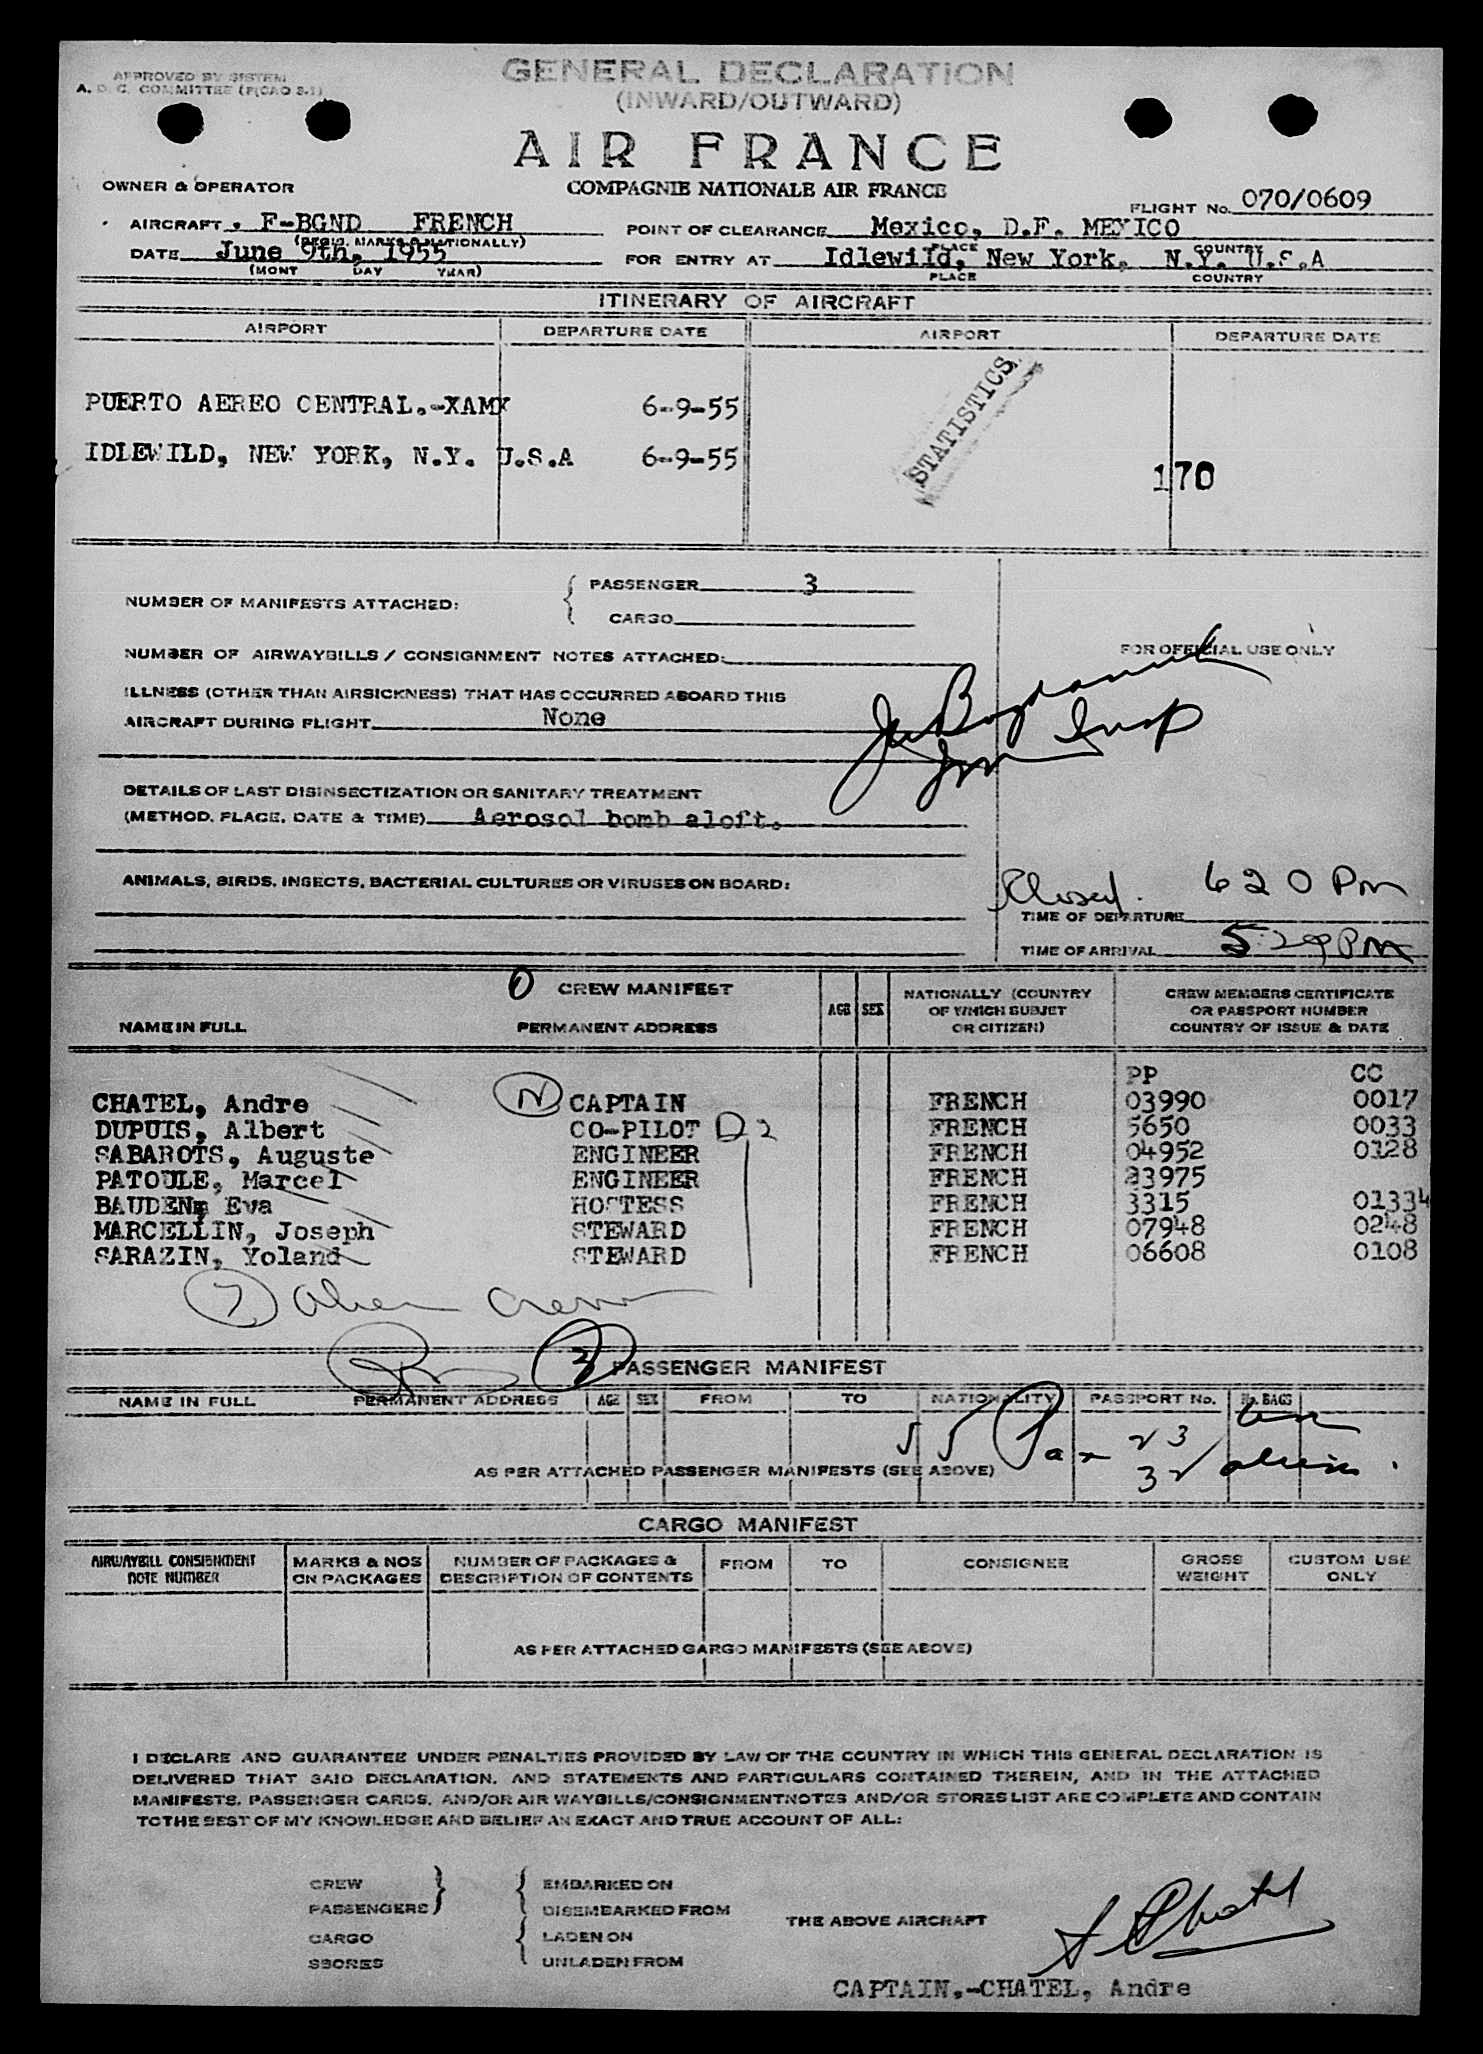 APPROVED BY SISTEM
A. D. C. COMMITTEE (F(CAO 2-1)
GENERAL DECLARATION
(INWARD/OUTWARD)
AIR FRANCE
COMPAGNIE NATIONALE AIR FRANCE
OWNER & OPERATOR
FLIGHT No. 070/0609
AIRCRAFT. F-BGND FRENCH
(REGIS. MARKS & NATIONALLY)
POINT OF CLEARANCE Mexico, D.F. MEXICO
PLACE COUNTRY
DATE June 9th, 1955
(MONT DAY YEAR)
FOR ENTRY AT Idlewild, New York, N.Y. U.S.A
PLACE COUNTRY
ITINERARY OF AIRCRAFT
AIRPORT DEPARTURE DATE AIRPORT DEPARTURE DATE
PUERTO AEREO CENTRAL.-XAMX 6-9-55
IDLEWILD, NEW YORK, N.Y. U.S.A 6-9-55
STATISTICS
170
NUMBER OF MANIFESTS ATTACHED: PASSENGER 3
CARGO
FOR OFFICIAL USE ONLY
NUMBER OF AIRWAYBILLS / CONSIGNMENT NOTES ATTACHED:
ILLNESS (OTHER THAN AIRSICKNESS) THAT HAS OCCURRED ABOARD THIS
AIRCRAFT DURING FLIGHT None
Imm Insp
DETAILS OF LAST DISINSECTIZATION OR SANITARY TREATMENT
(METHOD, PLACE, DATE & TIME) Aerosol bomb aloft.
ANIMALS, BIRDS, INSECTS, BACTERIAL CULTURES OR VIRUSES ON BOARD:
Closed. 620 Pm
TIME OF DEPARTURE
TIME OF ARRIVAL 5:29 PM
CREW MANIFEST
NAME IN FULL PERMANENT ADDRESS AGE SEX NATIONALLY (COUNTRY OF WHICH SUBJET OR CITIZEN) CREW MEMBERS CERTIFICATE OR PASSPORT NUMBER COUNTRY OF ISSUE & DATE
PP CC
CHATEL, Andre N CAPTAIN FRENCH 03990 0017
DUPUIS, Albert CO-PILOT D2 FRENCH 5650 0033
SABAROTS, Auguste ENGINEER FRENCH 04952 0128
PATOULE, Marcel ENGINEER FRENCH 33975
BAUDEN, Eva HOSTESS FRENCH 3315 01334
MARCELLIN, Joseph STEWARD FRENCH 07948 0248
SARAZIN, Yoland STEWARD FRENCH 06608 0108
7 alien crew
PASSENGER MANIFEST
NAME IN FULL PERMANENT ADDRESS AGE SEX FROM TO NATIONALITY PASSPORT No. No. BAGS
55 Pax 23
32 aliens
AS PER ATTACHED PASSENGER MANIFESTS (SEE ABOVE)
CARGO MANIFEST
AIRWAYBILL CONSIGNMENT NOTE NUMBER MARKS & NOS ON PACKAGES NUMBER OF PACKAGES & DESCRIPTION OF CONTENTS FROM TO CONSIGNEE GROSS WEIGHT CUSTOM USE ONLY
AS PER ATTACHED GARGO MANIFESTS (SEE ABOVE)
I DECLARE AND GUARANTEE UNDER PENALTIES PROVIDED BY LAW OF THE COUNTRY IN WHICH THIS GENERAL DECLARATION IS
DELIVERED THAT SAID DECLARATION, AND STATEMENTS AND PARTICULARS CONTAINED THEREIN, AND IN THE ATTACHED
MANIFESTS, PASSENGER CARDS, AND/OR AIR WAYBILLS/CONSIGNMENTNOTES AND/OR STORES LIST ARE COMPLETE AND CONTAIN
TO THE BEST OF MY KNOWLEDGE AND BELIEF AN EXACT AND TRUE ACCOUNT OF ALL:
CREW EMBARKED ON
PASSENGERS DISEMBARKED FROM
THE ABOVE AIRCRAFT
CARGO LADEN ON
SBORES UNLADEN FROM
A Chatel
CAPTAIN.-CHATEL, Andre